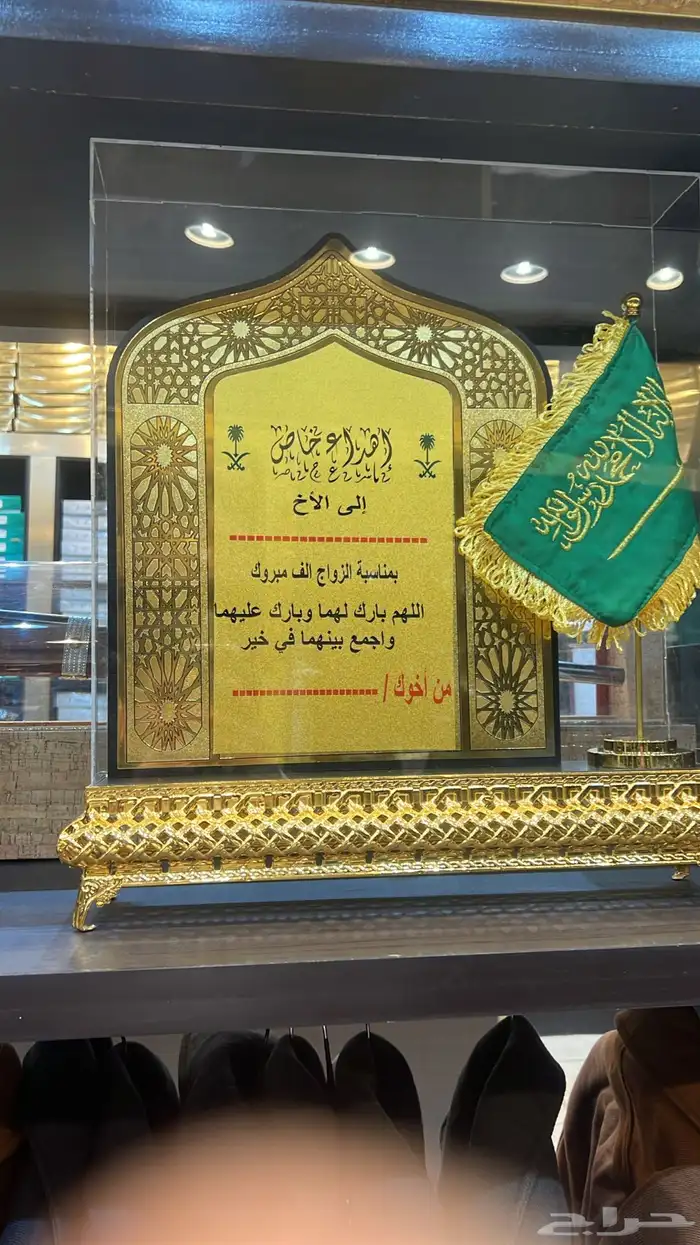 إهداء خاص
إلى الأخ
بمناسبة الزواج الف مبروك
اللهم بارك لهما وبارك عليهما
واجمع بينهما في خير
من أخوك /
لا إله إلا الله محمد رسول الله
حراج